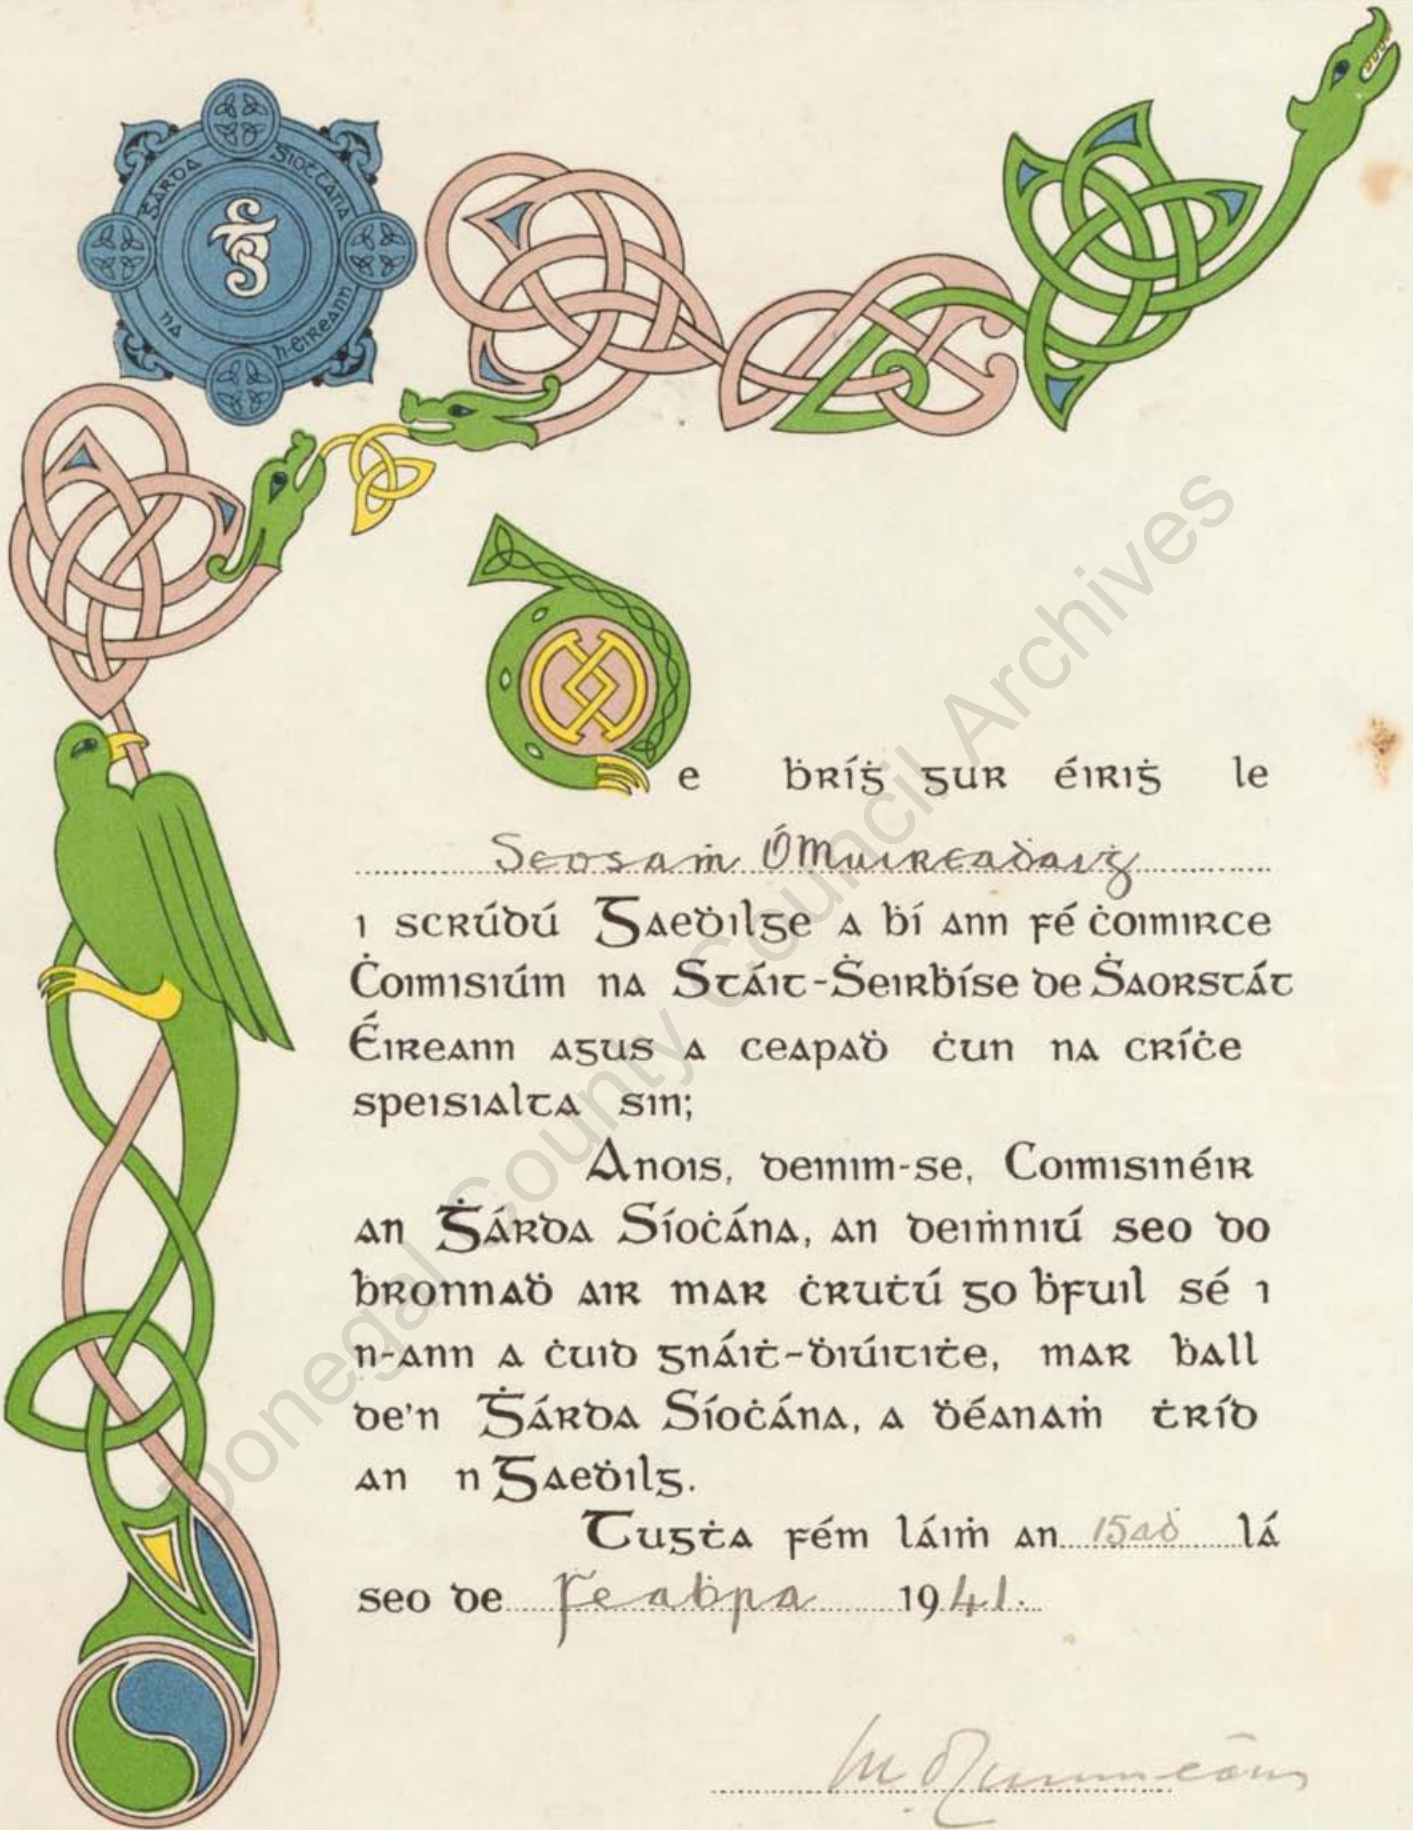 GÁRDA SÍOĊĊÁNA
na h-éireann
De ḃríġ gur éiriġ le
Seosaṁ Ó Muireaḋaiġ
i scrúdú Gaeḋilge a ḃí ann fé ċoimirce
Ċoimisiúin na Stáit-Ṡeirḃíse de Ṡaorstát
Éireann agus a ceapaḋ ċun na críċe
speisialta sin;
Anois, deinim-se, Coimisinéir
an Ġárda Síoċána, an deiṁniú seo do
ḃronnaḋ air mar ċruṫú go ḃfuil sé i
n-ann a ċuid gnáiṫ-ḋiúitiṫe, mar ḃall
de'n Ġárda Síoċána, a ḋéanaṁ ṫríd
an nGaeḋilg.
Tugṫa fém láiṁ an 15aḋ lá
seo de Feaḃra 1941.
Donegal County Council Archives